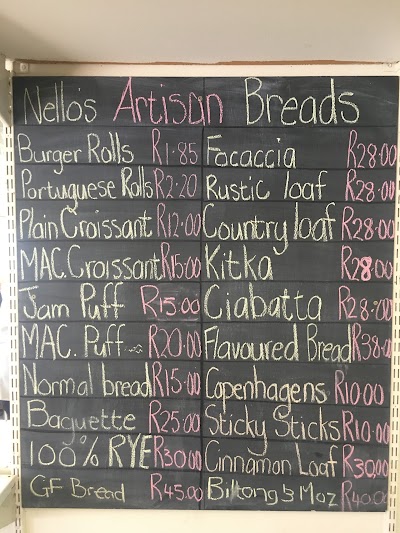 Nello's Artisan Breads
Burger Rolls R1.85
Portuguese Rolls R2.20
Plain Croissant R12.00
MAC. Croissant R15.00
Jam Puff R15.00
MAC. Puff R20.00
Normal bread R15.00
Baguette R25.00
100% RYE R30.00
GF Bread R45.00
Focaccia R28.00
Rustic loaf R28.00
Country loaf R28.00
Kitka R28.00
Ciabatta R28.00
Flavoured Bread R38.00
Copenhagens R10.00
Sticky Sticks R10.00
Cinnamon Loaf R30.00
Biltong & Moz R40.00